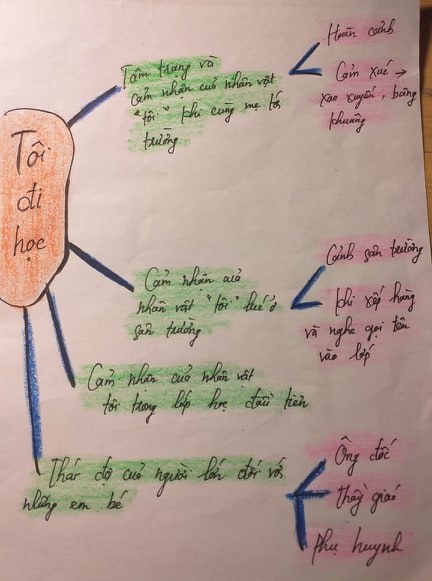 Tôi
đi
học
Tâm trạng và
cảm nhận của nhân vật
"tôi" khi cùng mẹ tới
trường
Hoàn cảnh
Cảm xúc →
xao xuyến, bâng
khuâng
Cảm nhận của
nhân vật "tôi" lúc ở
sân trường
Cảnh sân trường
khi xếp hàng
và nghe gọi tên
vào lớp
Cảm nhận của nhân vật
tôi trong lớp học đầu tiên
Thái độ của người lớn đối với
những em bé
Ông đốc
thầy giáo
Phụ huynh